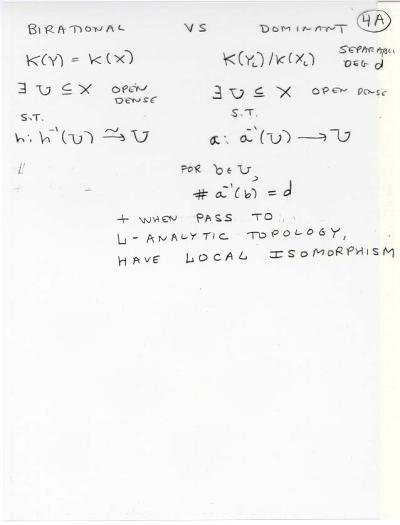 BIRATIONAL VS DOMINANT 4A
K(Y) = K(X) K(Y_L)/K(X_L) SEPARABLE DEG d
∃ U ⊆ X OPEN DENSE ∃ U ⊆ X OPEN DENSE
S.T. S.T.
h: h⁻¹(U) ⥲ U a: a⁻¹(U) → U
FOR b ∈ U,
# a⁻¹(b) = d
+ WHEN PASS TO
L-ANALYTIC TOPOLOGY,
HAVE LOCAL ISOMORPHISM